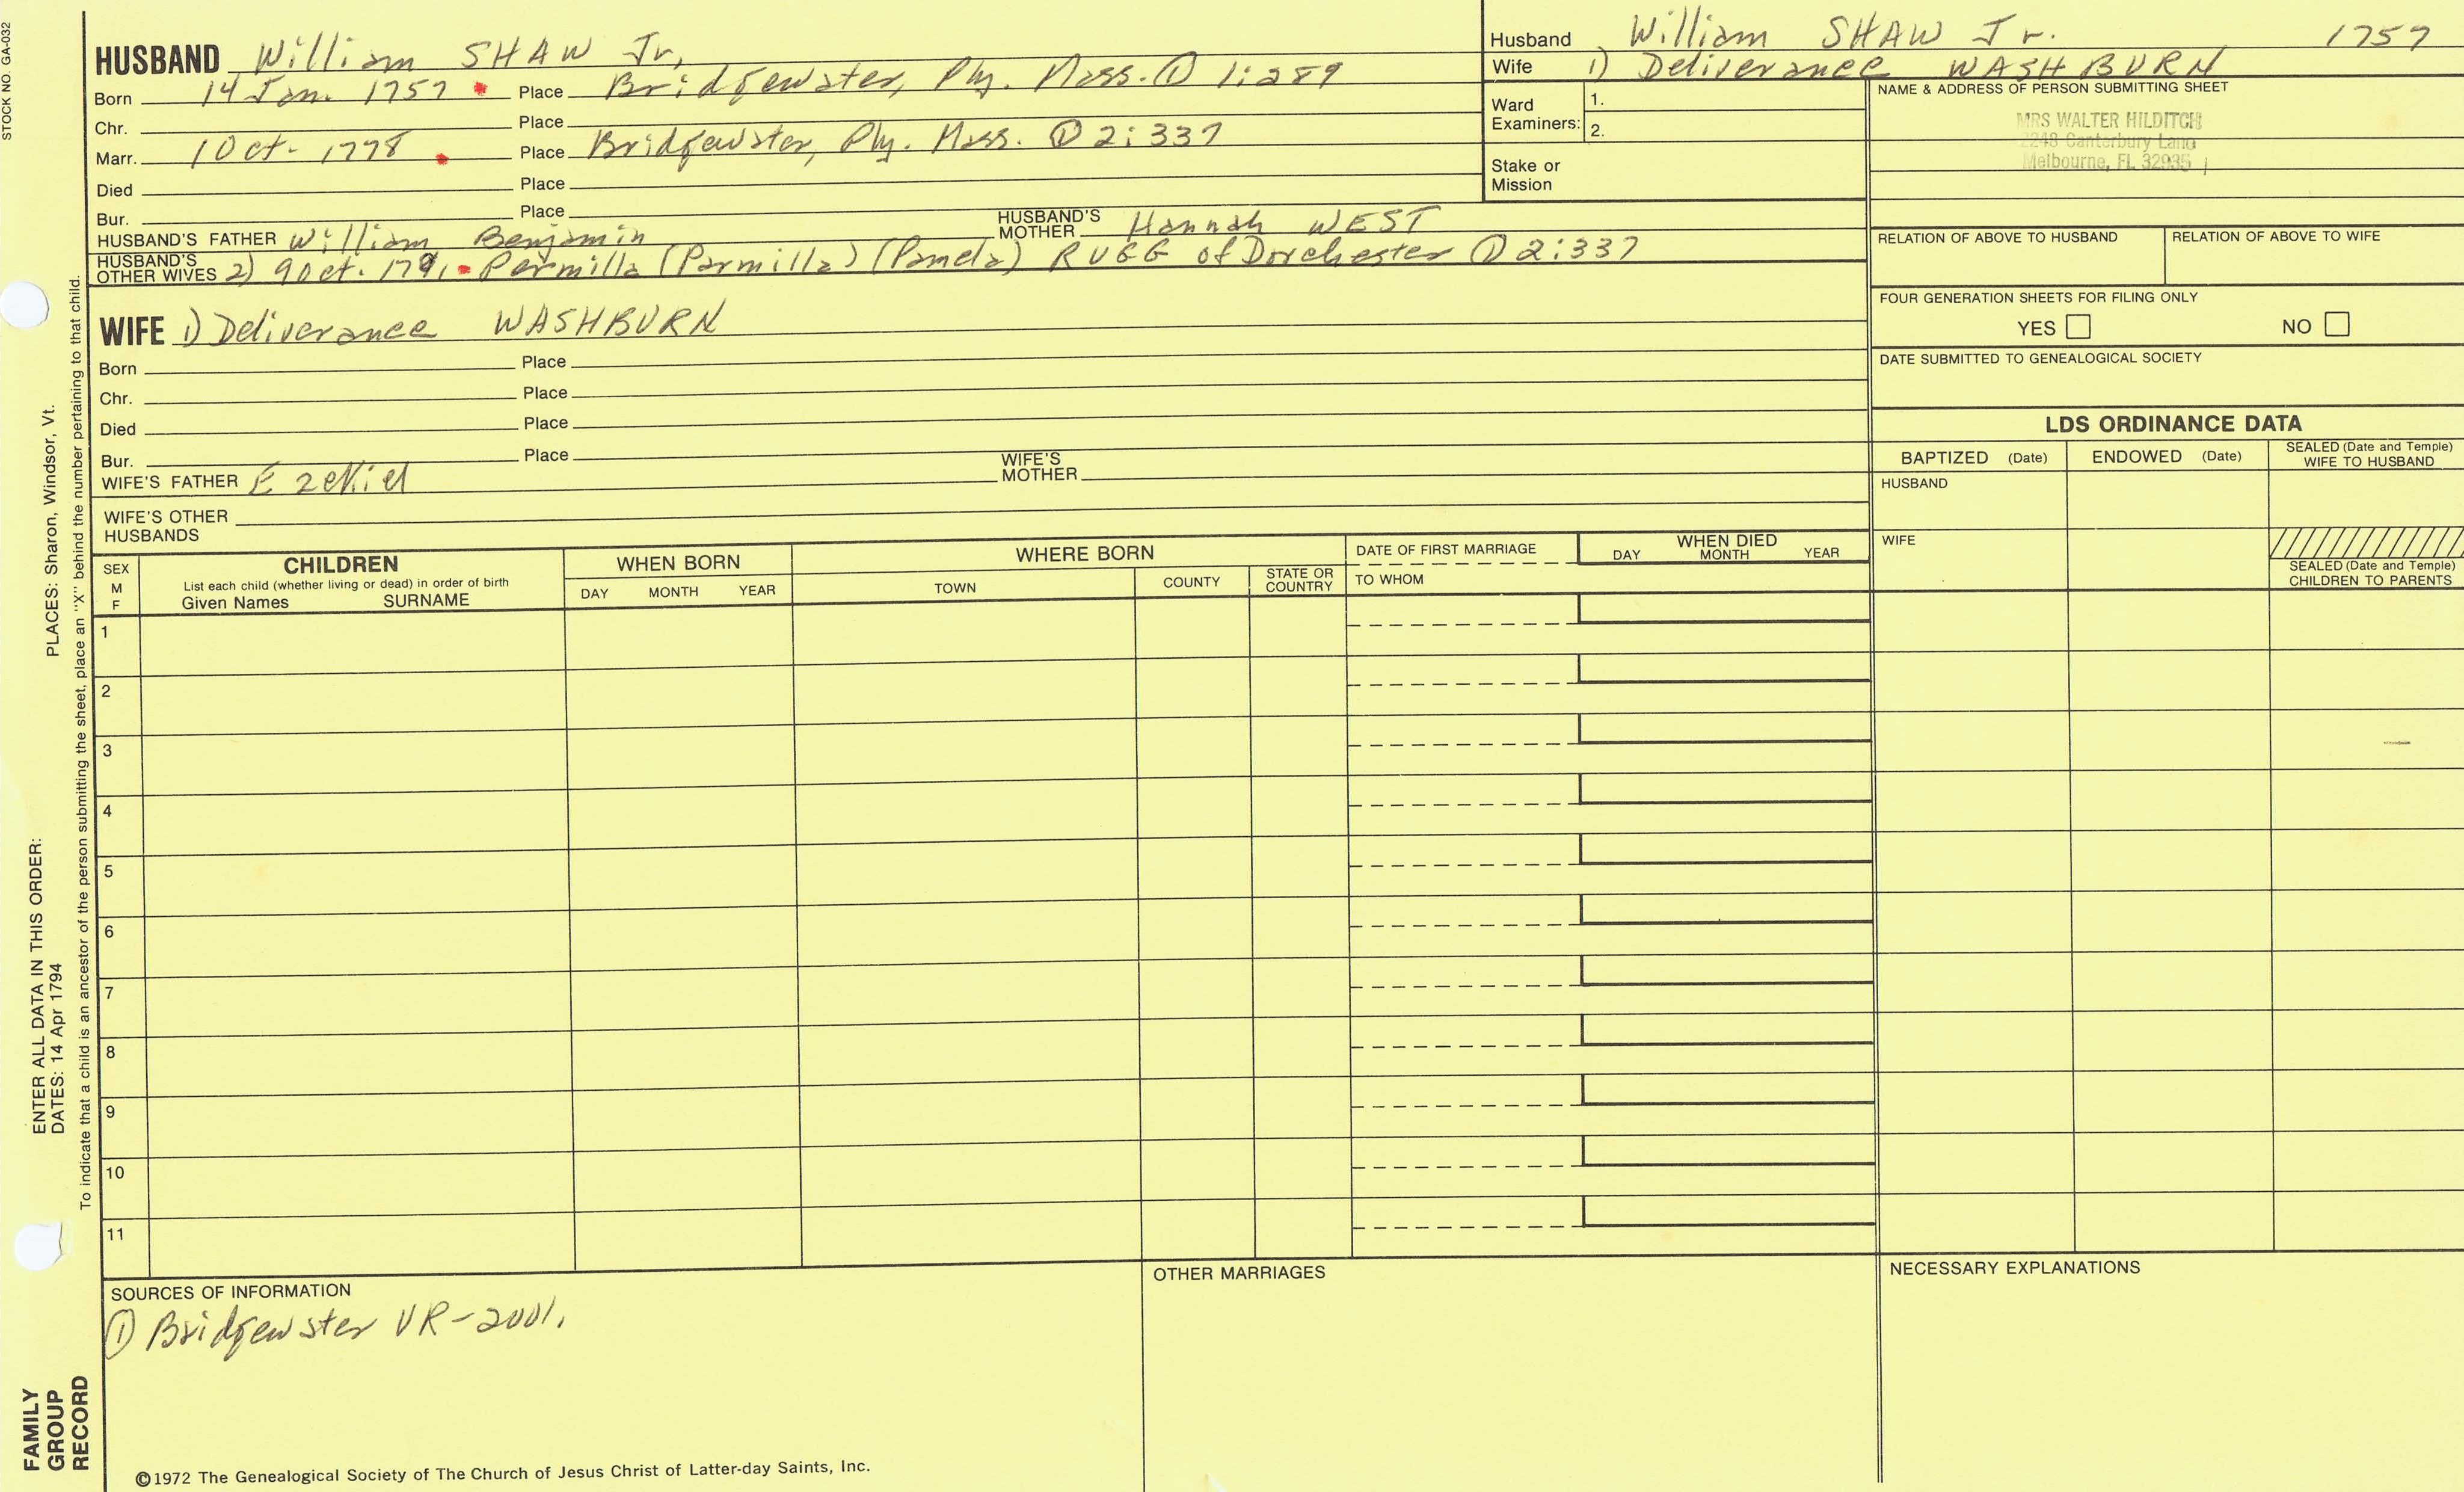 STOCK NO. GA-032
HUSBAND William SHAW Jr.
Born 14 Jan. 1757 Place Bridgewater, Ply. Mass. ① 1:289
Chr. Place
Marr. 1 Oct. 1778 Place Bridgewater, Ply. Mass. ① 2:337
Died Place
Bur. Place
HUSBAND'S FATHER William Benjamin HUSBAND'S MOTHER Hannah WEST
HUSBAND'S OTHER WIVES 2) 9 Oct. 1791 Permilla (Parmilla) (Pamela) RUGG of Dorchester ① 2:337
Husband William SHAW Jr. 1757
Wife 1) Deliverance WASHBURN
Ward Examiners: 1.
2.
Stake or Mission
NAME & ADDRESS OF PERSON SUBMITTING SHEET
MRS WALTER HILDITCH
2248 Canterbury Lang
Melbourne, FL 32935
RELATION OF ABOVE TO HUSBAND RELATION OF ABOVE TO WIFE
FOUR GENERATION SHEETS FOR FILING ONLY
YES NO
DATE SUBMITTED TO GENEALOGICAL SOCIETY
WIFE 1) Deliverance WASHBURN
Born Place
Chr. Place
Died Place
Bur. Place
WIFE'S FATHER Ezekiel WIFE'S MOTHER
WIFE'S OTHER HUSBANDS
LDS ORDINANCE DATA
BAPTIZED (Date) ENDOWED (Date) SEALED (Date and Temple) WIFE TO HUSBAND
HUSBAND
WIFE
SEALED (Date and Temple) CHILDREN TO PARENTS
SEX M F
CHILDREN
List each child (whether living or dead) in order of birth
Given Names SURNAME
WHEN BORN
DAY MONTH YEAR
WHERE BORN
TOWN COUNTY STATE OR COUNTRY
DATE OF FIRST MARRIAGE
TO WHOM
WHEN DIED
DAY MONTH YEAR
1
2
3
4
5
6
7
8
9
10
11
SOURCES OF INFORMATION
① Bridgewster VR-2001.
OTHER MARRIAGES
NECESSARY EXPLANATIONS
©1972 The Genealogical Society of The Church of Jesus Christ of Latter-day Saints, Inc.
FAMILY GROUP RECORD
ENTER ALL DATA IN THIS ORDER:
DATES: 14 Apr 1794 PLACES: Sharon, Windsor, Vt.
To indicate that a child is an ancestor of the person submitting the sheet, place an "X" behind the number pertaining to that child.